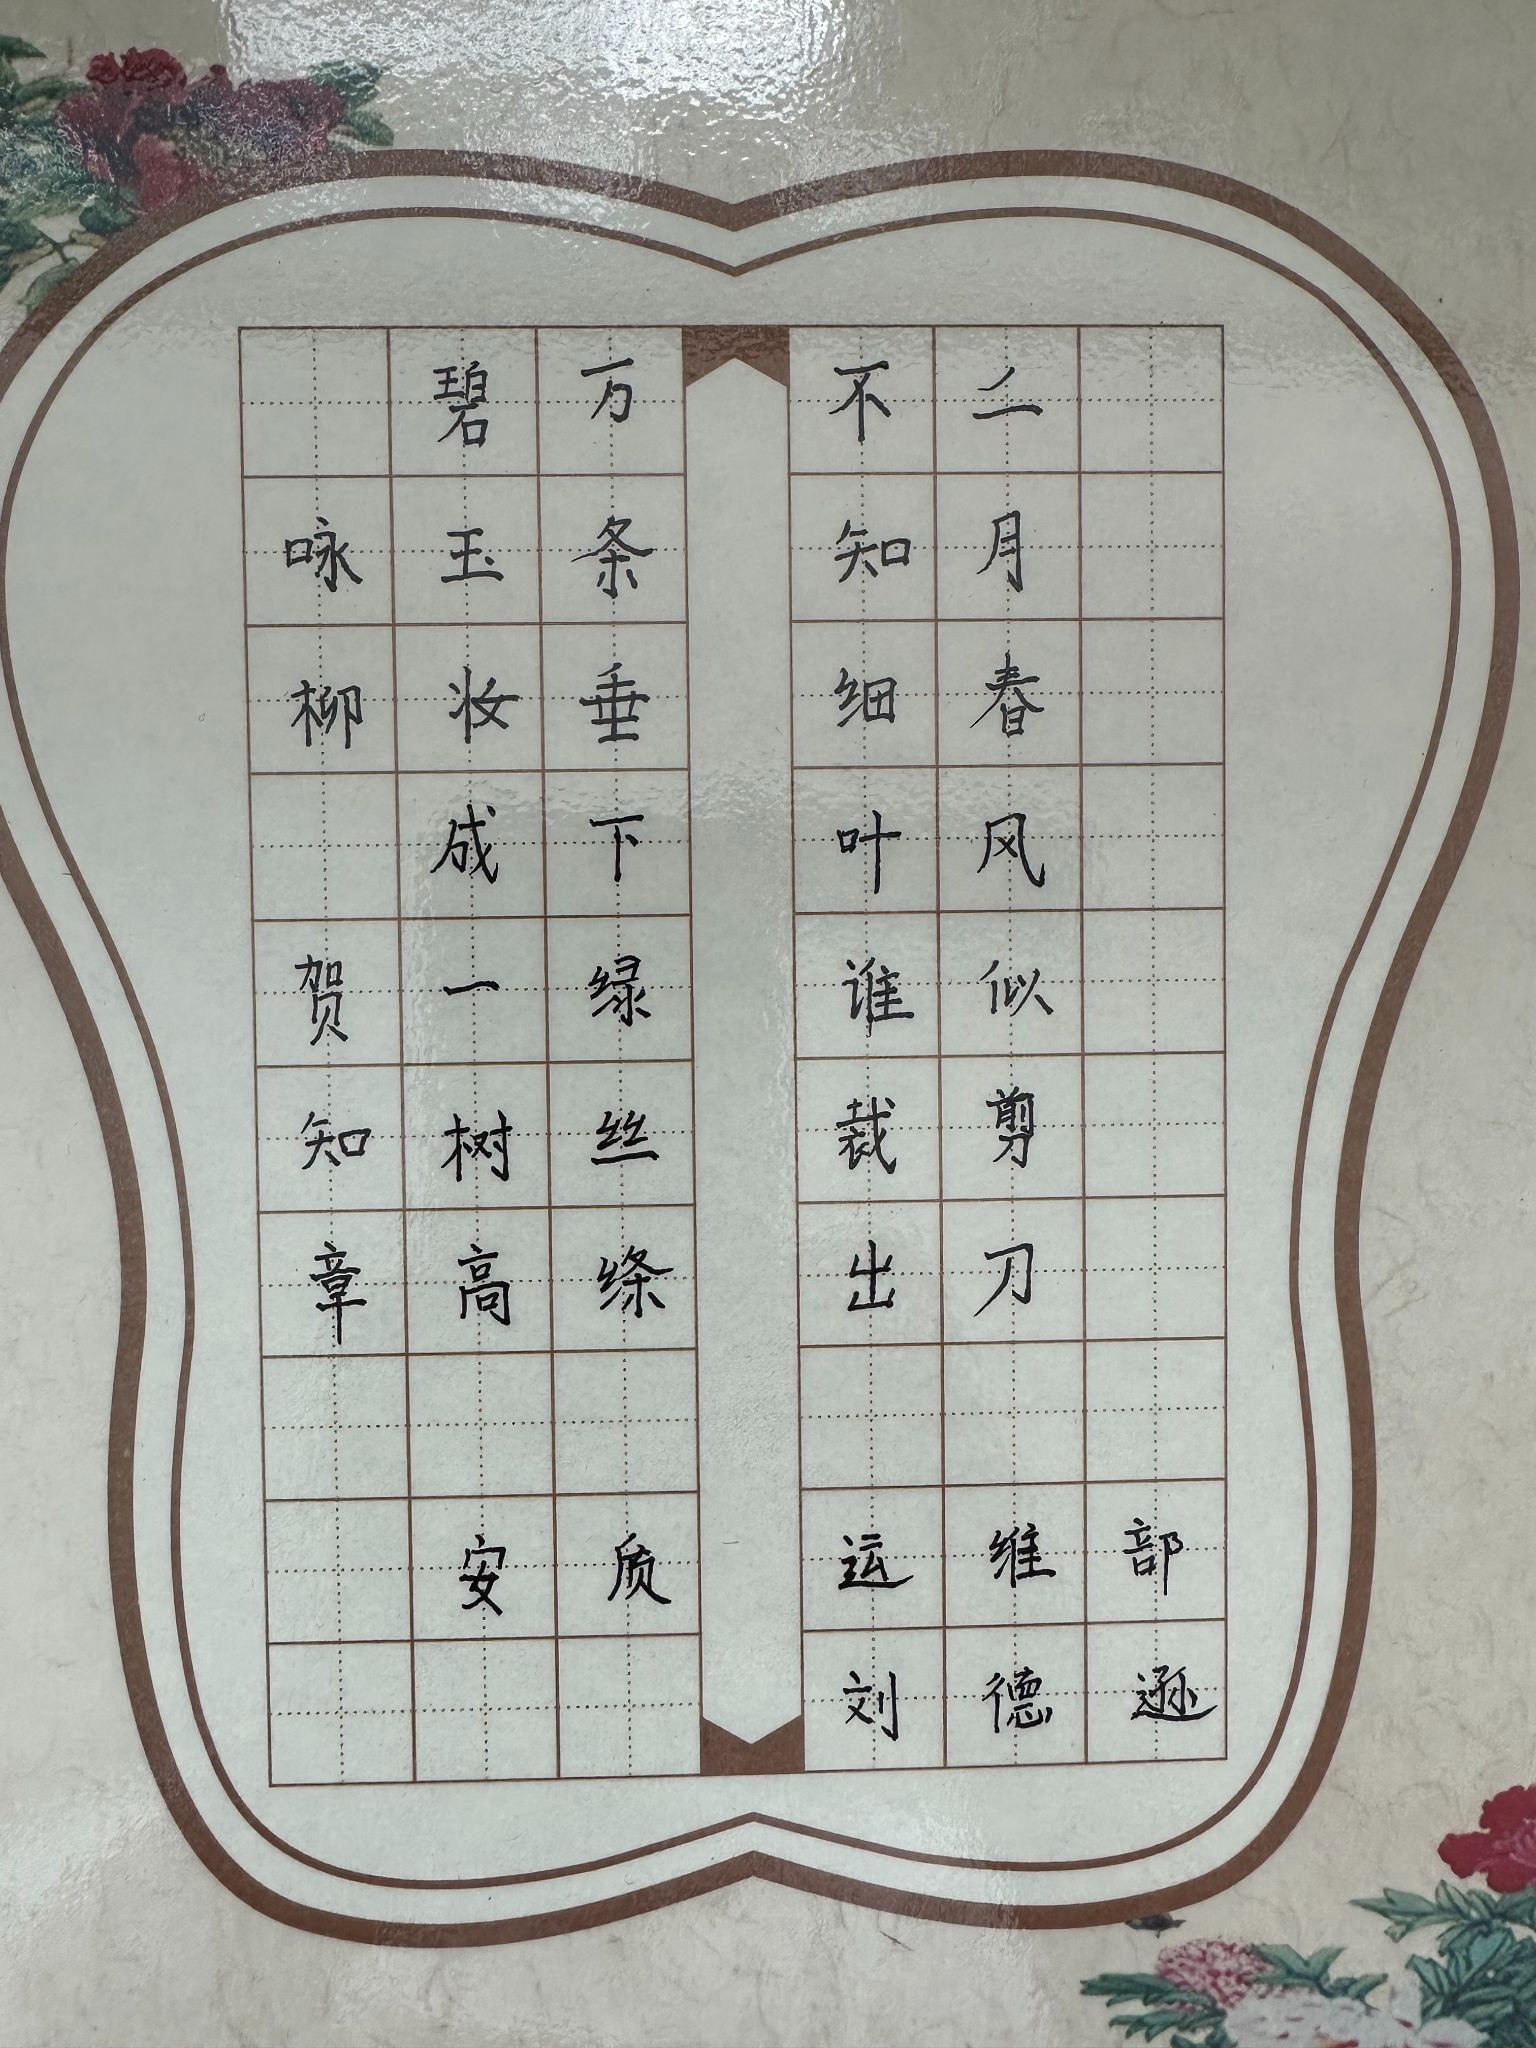 咏柳 贺知章
碧玉妆成一树高
万条垂下绿丝绦
不知细叶谁裁出
二月春风似剪刀
安质运维部
刘德遜